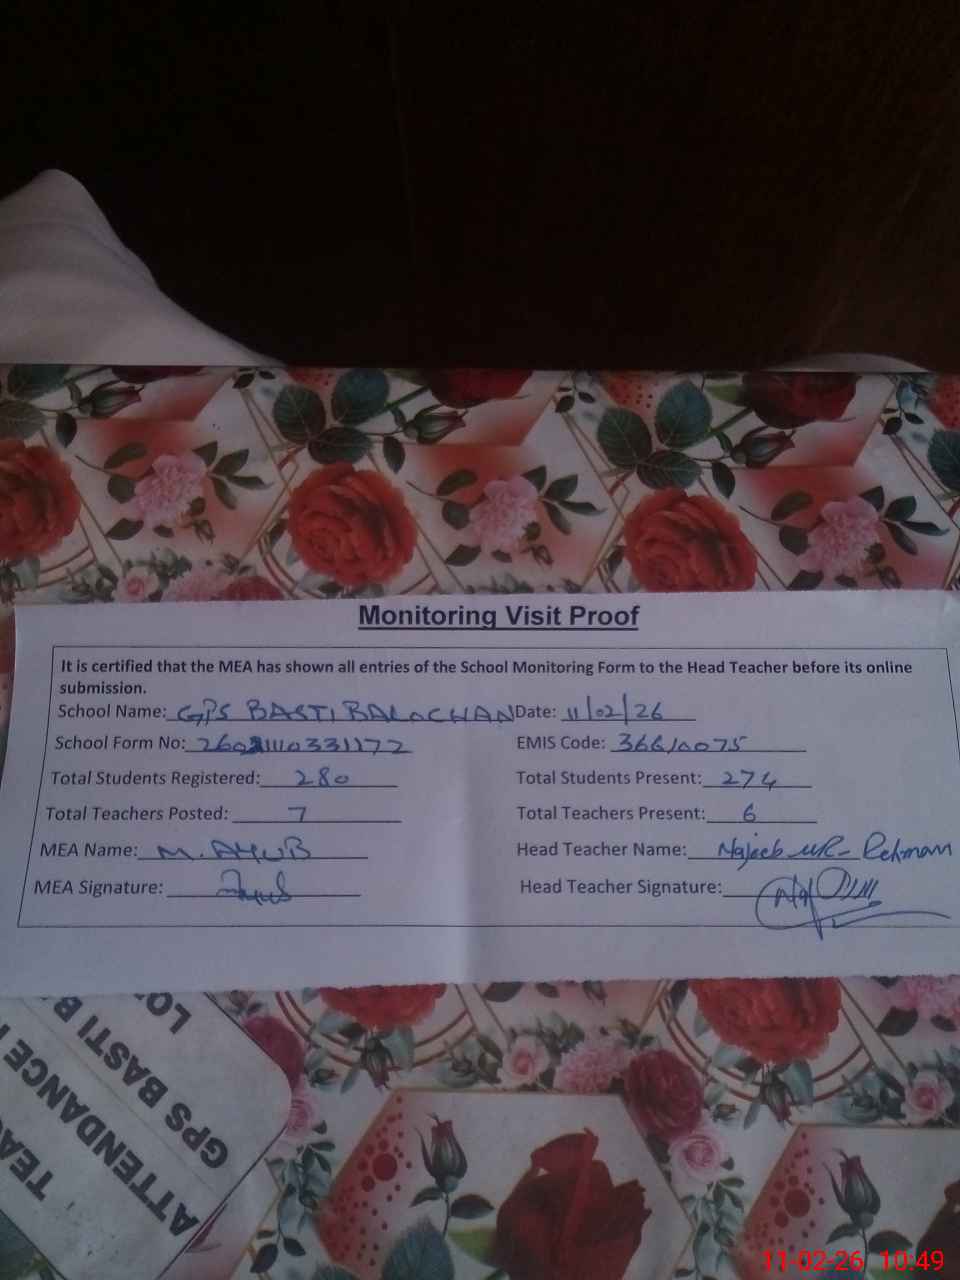 Monitoring Visit Proof
It is certified that the MEA has shown all entries of the School Monitoring Form to the Head Teacher before its online
submission.
School Name: GPS BASTI BALOCHAN Date: 11/02/26
School Form No: EMIS Code: 36610075
Total Students Registered: 280 Total Students Present: 274
Total Teachers Posted: 7 Total Teachers Present: 6
MEA Name: M. AYUB Head Teacher Name: Najeeb-uR-Rehman
MEA Signature: Ayub Head Teacher Signature:
ATTENDANCE
GPS BASTI B
11-02-26 10:49